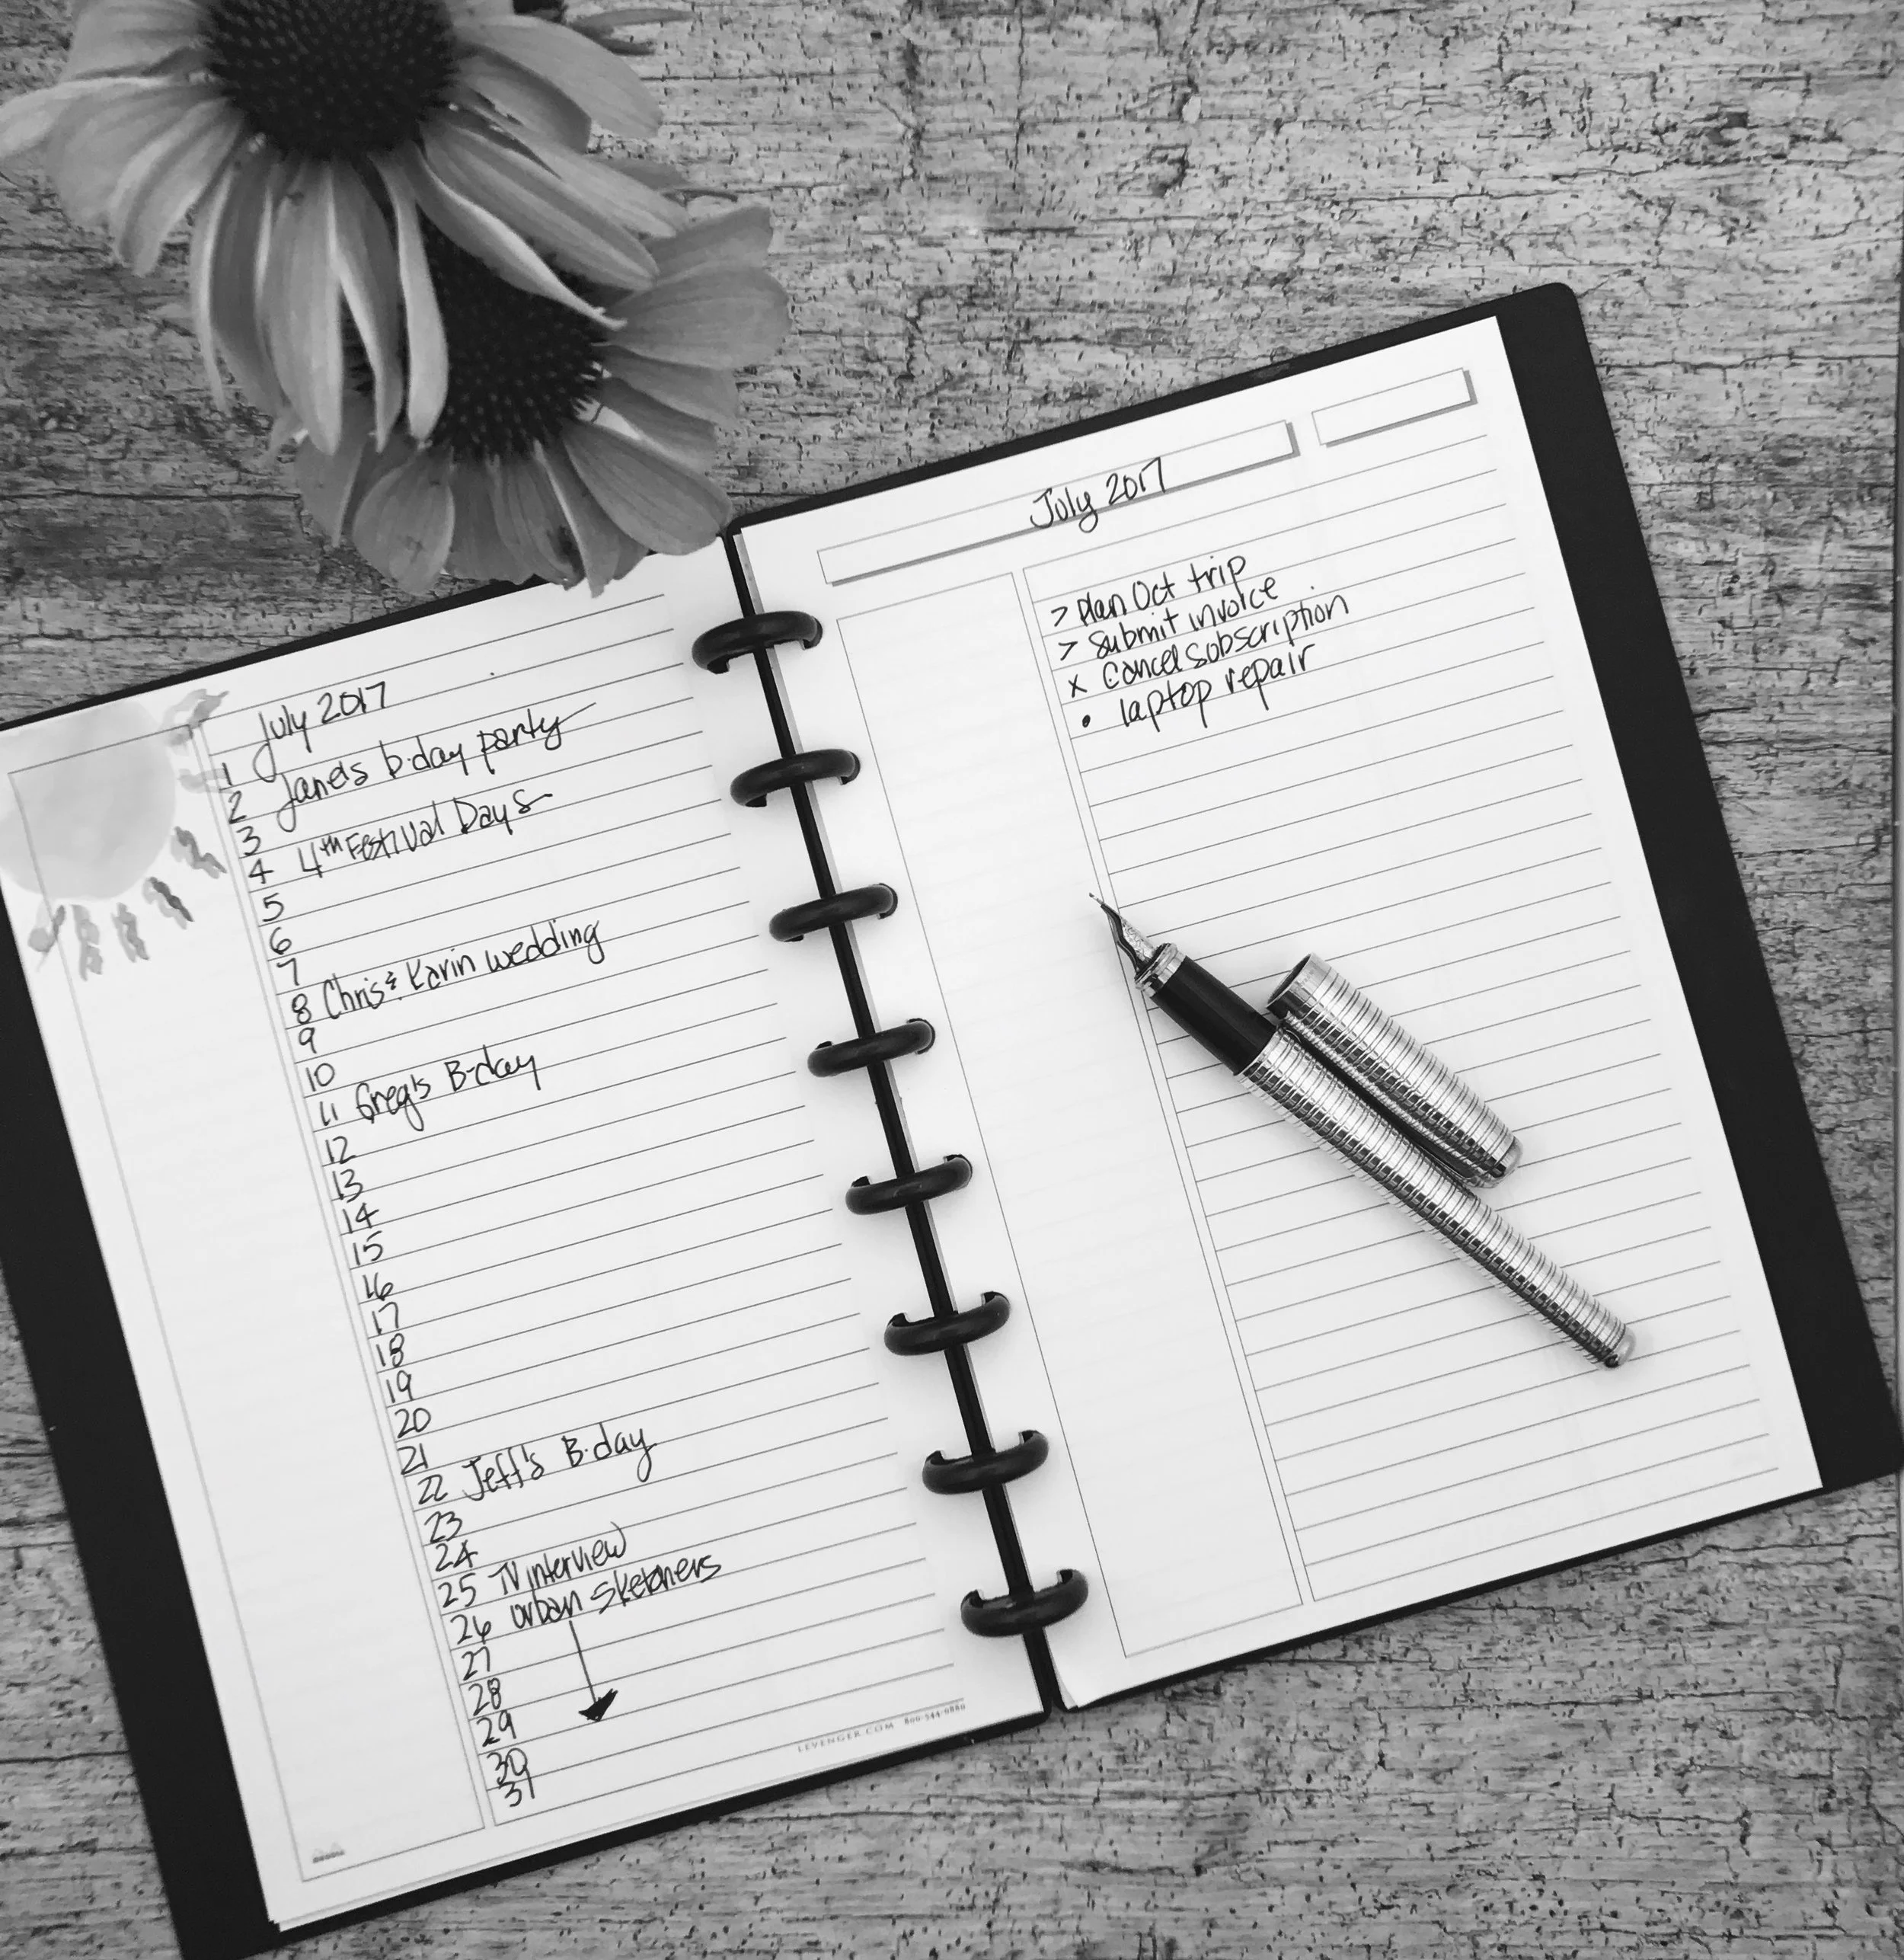 July 2017
1
2 Jane's b-day party
3
4 4th Festival Days
5
6
7
8 Chris & Karin wedding
9
10
11 Greg's B-day
12
13
14
15
16
17
18
19
20
21
22 Jeff's B-day
23
24
25 TV interview
26 urban sketchers
27
28
29
30
31
LEVENGER.COM 800-544-0880
July 2017
> Plan Oct trip
> Submit invoice
x Cancel subscription
• laptop repair